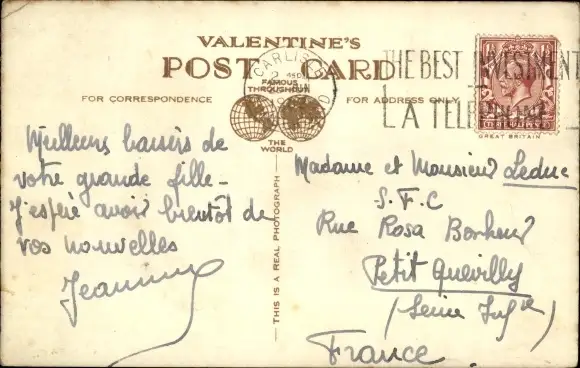 VALENTINE'S
POST CARD
FAMOUS
THROUGHOUT
THE
WORLD
FOR CORRESPONDENCE
FOR ADDRESS ONLY
CARLISLE
THE BEST INVESTMENT
A TELEPHONE
GREAT BRITAIN
Meilleurs baisers de
votre grande fille -
J'espère avoir bientôt de
vos nouvelles
Jeannine
THIS IS A REAL PHOTOGRAPH
Madame et Monsieur Leduc
S.F.C
Rue Rosa Bonheur
Petit Quevilly
(Seine Infre)
France